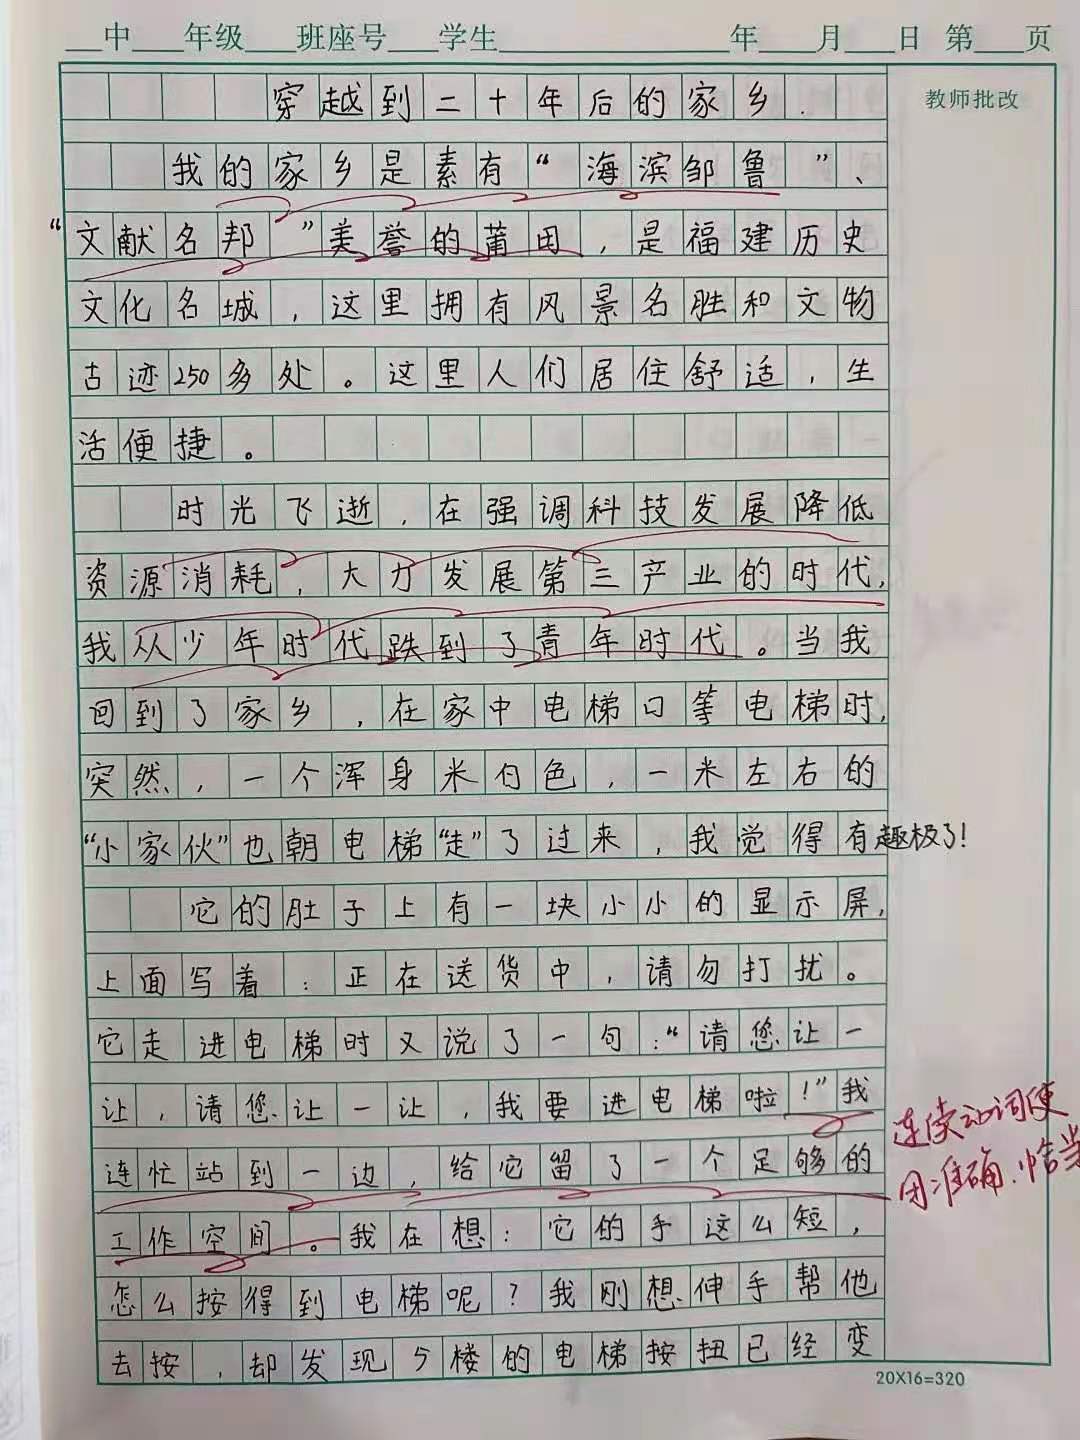 中 年级 班座号 学生 年 月 日 第 页
教师批改
穿越到二十年后的家乡.
我的家乡是素有“海滨邹鲁”、
“文献名邦”美誉的莆田,是福建历史
文化名城,这里拥有风景名胜和文物
古迹250多处。这里人们居住舒适,生
活便捷。
时光飞逝,在强调科技发展降低
资源消耗,大力发展第三产业的时代,
我从少年时代跌到了青年时代。当我
回到了家乡,在家中电梯口等电梯时,
突然,一个浑身米白色,一米左右的
“小家伙”也朝电梯“走”了过来,我觉得有趣极了!
它的肚子上有一块小小的显示屏,
上面写着:正在送货中,请勿打扰。
它走进电梯时又说了一句:“请您让一
让,请您让一让,我要进电梯啦!”我
连忙站到一边,给它留了一个足够的
工作空间。我在想:它的手这么短,
怎么按得到电梯呢?我刚想伸手帮他
去按,却发现5楼的电梯按扭已经变
连续动词使
用准确、恰当
20X16=320